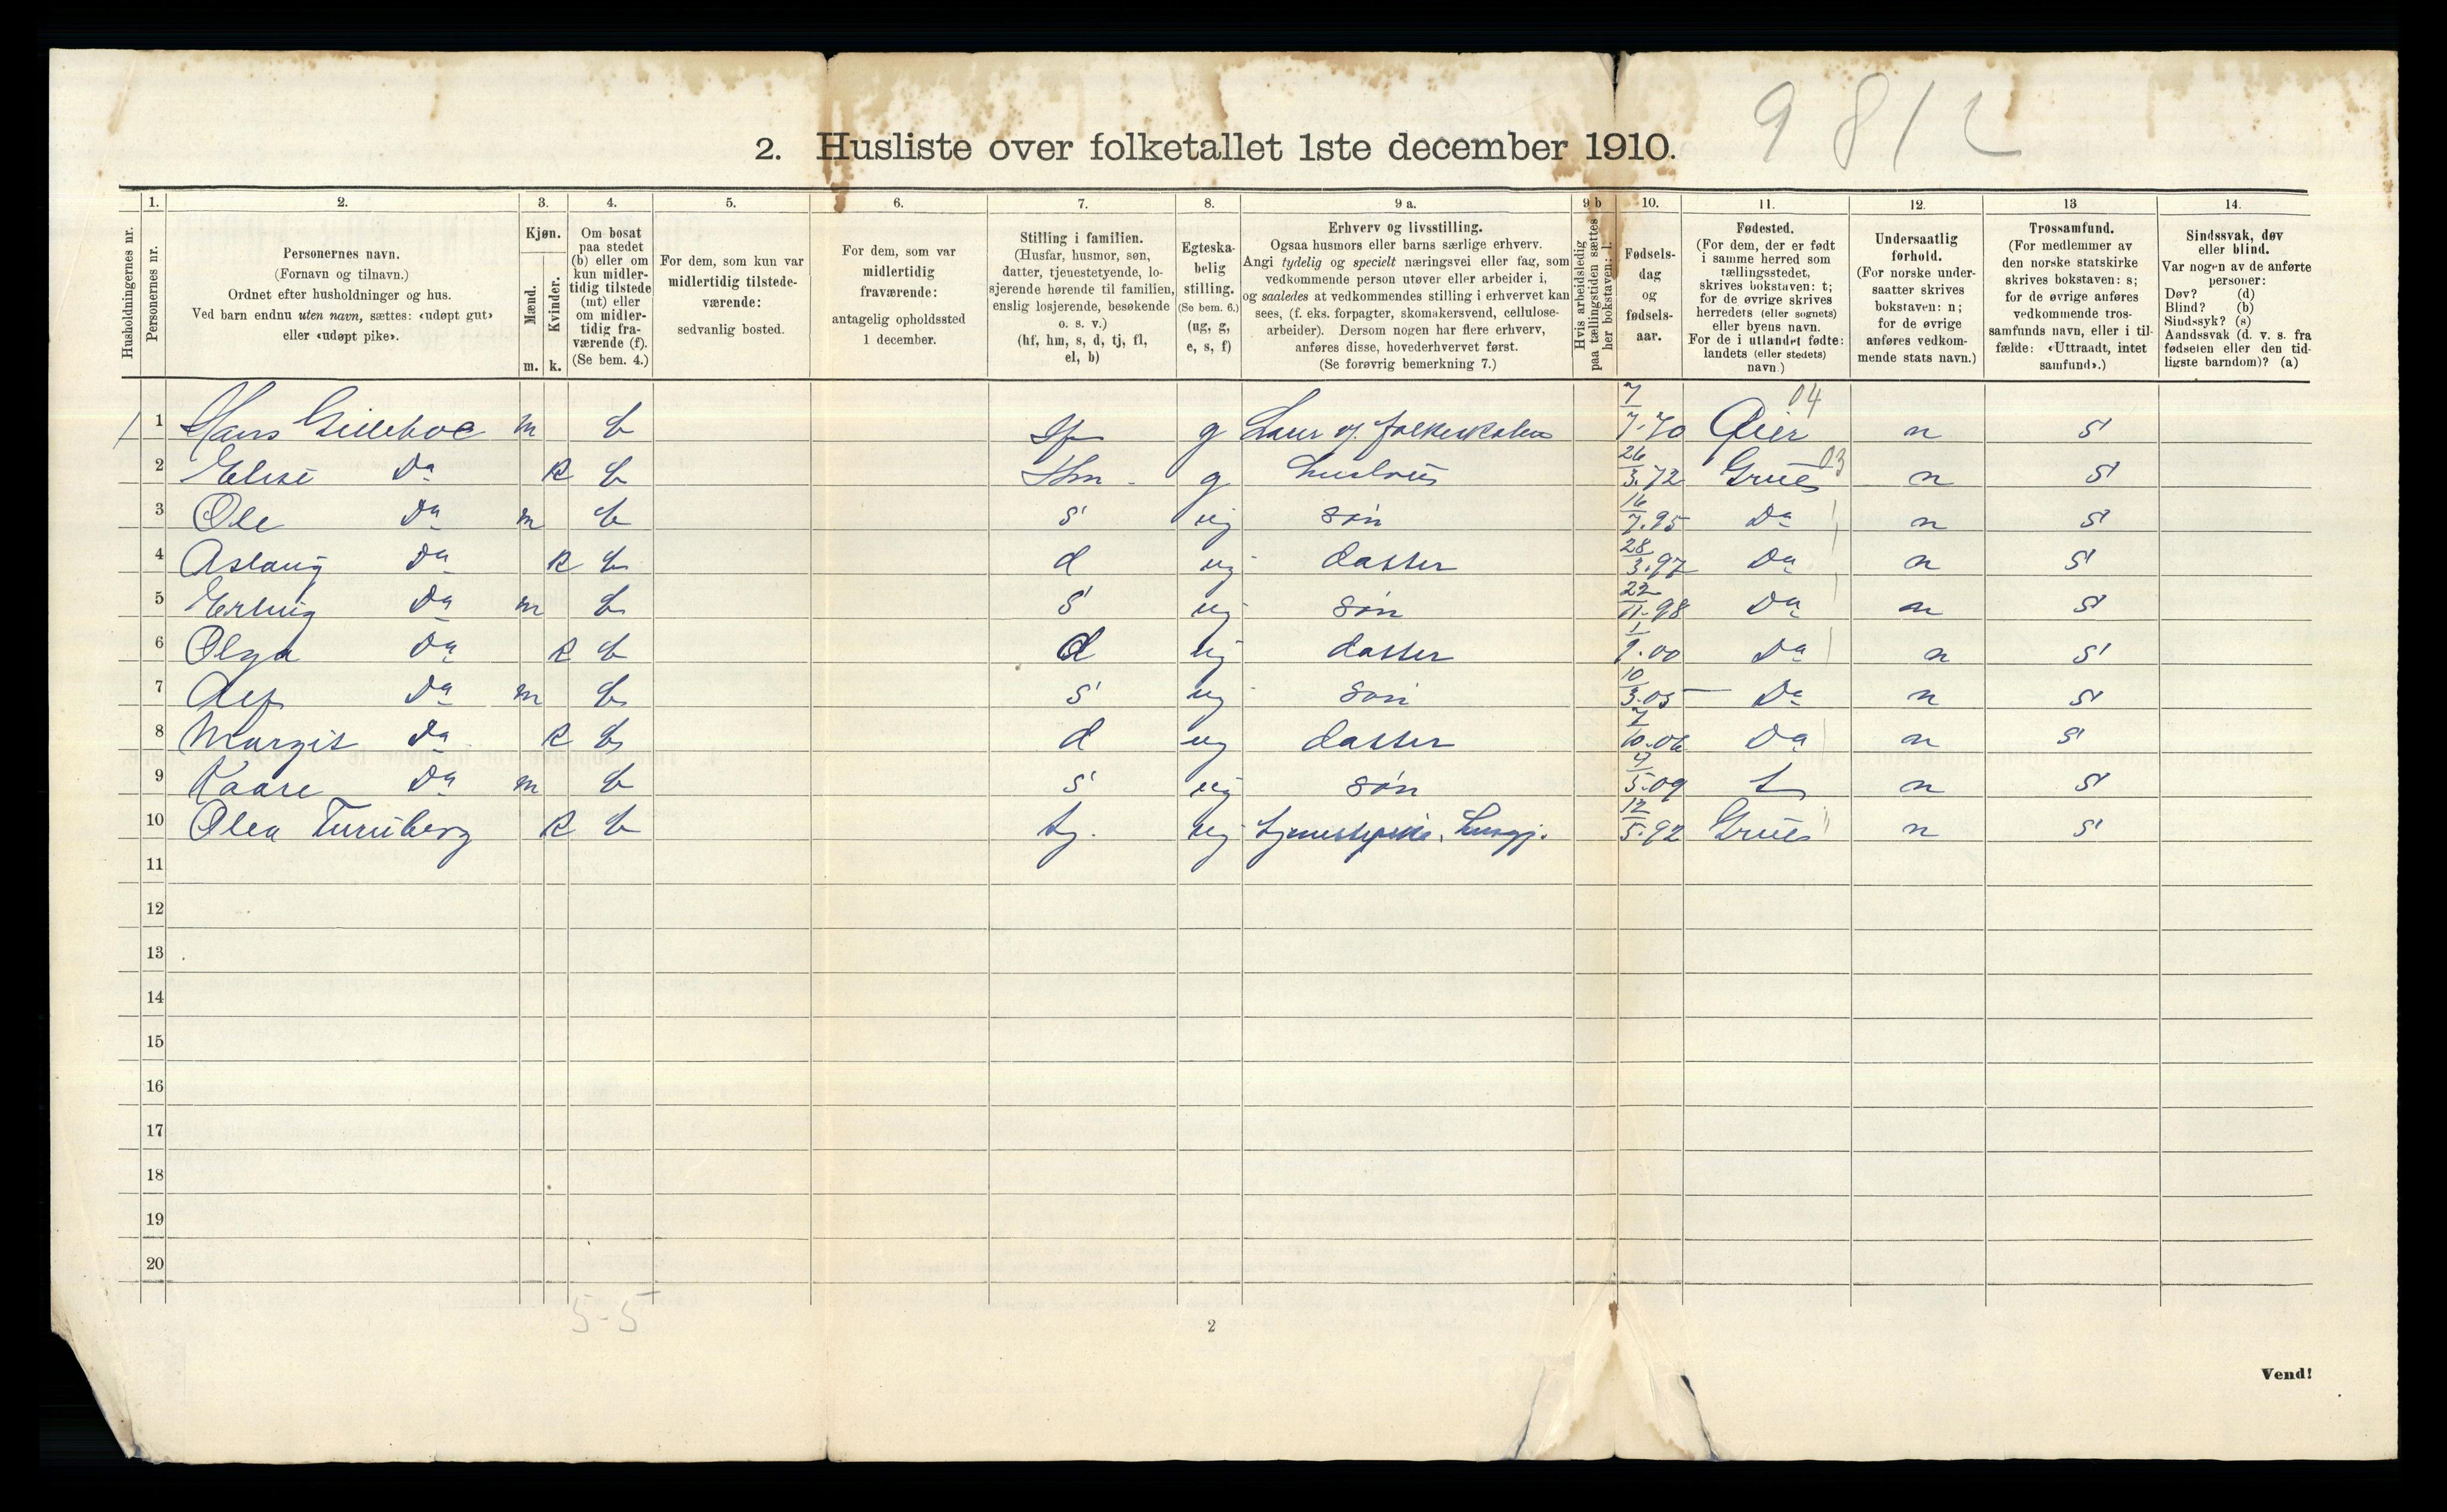 9812
2. Husliste over folketallet 1ste december 1910.
Husholdningernes nr.
1. Personernes nr.
2. Personernes navn. (Fornavn og tilnavn.) Ordnet efter husholdninger og hus. Ved barn endnu uten navn, sættes: «udøpt gut» eller «udøpt pike».
3. Kjøn. Mænd. m. Kvinder. k.
4. Om bosat paa stedet (b) eller om kun midlertidig tilstede (mt) eller om midlertidig fraværende (f). (Se bem. 4.)
5. For dem, som kun var midlertidig tilstedeværende: sedvanlig bosted.
6. For dem, som var midlertidig fraværende: antagelig opholdssted 1 december.
7. Stilling i familien. (Husfar, husmor, søn, datter, tjenestetyende, losjerende hørende til familien, enslig losjerende, besøkende o. s. v.) (hf, hm, s, d, tj, fl, el, b)
8. Egteskabelig stilling. (Se bem. 6.) (ug, g, e, s, f)
9 a. Erhverv og livsstilling. Ogsaa husmors eller barns særlige erhverv. Angi tydelig og specielt næringsvei eller fag, som vedkommende person utøver eller arbeider i, og saaledes at vedkommendes stilling i erhvervet kan sees, (f. eks. forpagter, skomakersvend, cellulosearbeider). Dersom nogen har flere erhverv, anføres disse, hovederhvervet først. (Se forøvrig bemerkning 7.)
9 b Hvis arbeidsledig paa tællingstiden sættes her bokstaven: l.
10. Fødselsdag og fødselsaar.
11. Fødested. (For dem, der er født i samme herred som tællingsstedet, skrives bokstaven: t; for de øvrige skrives herredets (eller sognets) eller byens navn. For de i utlandet fødte: landets (eller stedets) navn.)
12. Undersaatlig forhold. (For norske undersaatter skrives bokstaven: n; for de øvrige anføres vedkommende stats navn.)
13 Trossamfund. (For medlemmer av den norske statskirke skrives bokstaven: s; for de øvrige anføres vedkommende trossamfunds navn, eller i tilfælde: «Uttraadt, intet samfund».)
14. Sindssvak, døv eller blind. Var nogen av de anførte personer: Døv? (d) Blind? (b) Sindssyk? (s) Aandssvak (d. v. s. fra fødselen eller den tidligste barndom)? (a)
1 Hans Gilleboe m b Hf g 7/7.70 Øier 04 n s
2 Elise Do k b Hm g husloeis 26/3.72 Grue 03 n s
3 Ole Do m b s ug søn 16/7.95 Do n s
4 Aslaug Do k b d ug datter 28/3.97 Do n s
5 Erling Do m b s ug søn 22/11.98 Do n s
6 Olga Do k b d ug datter 1/9.00 Do n s
7 Alf Do m b s ug søn 10/3.05 Do n s
8 Margit Do k b d ug datter 7/10.06 Do n s
9 Kaare Do m b s ug søn 9/5.09 t n s
10 Olea k b tj. ug tjenestepike. husgj. 12/5.92 Grue n s
11
12
13
14
15
16
17
18
19
20
5-5
2
Vend!